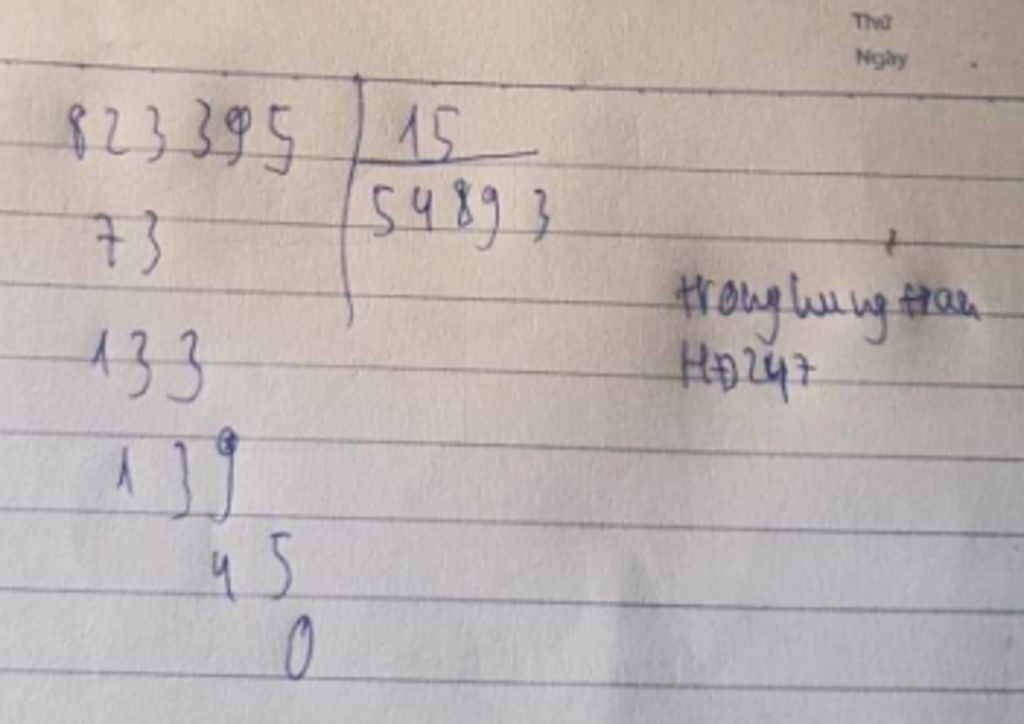 Thứ
Ngày
823395 15
73 54893
133
139
45
0
tronghungtran
HĐ247